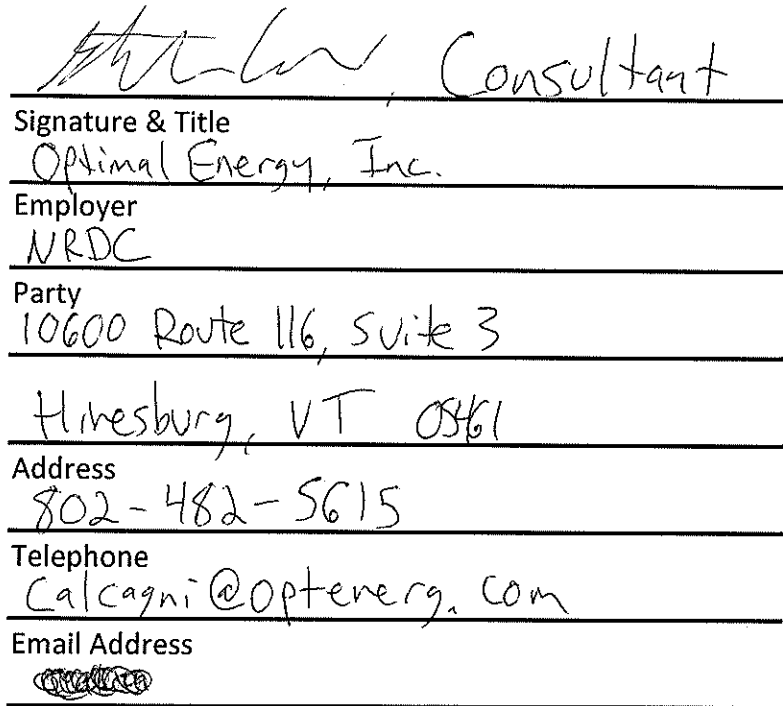 , Consultant
Signature & Title
Optimal Energy, Inc.
Employer
NRDC
Party
10600 Route 116, Suite 3
Hinesburg, VT 05461
Address
802-482-5615
Telephone
Calcagni@optenerg.com
Email Address